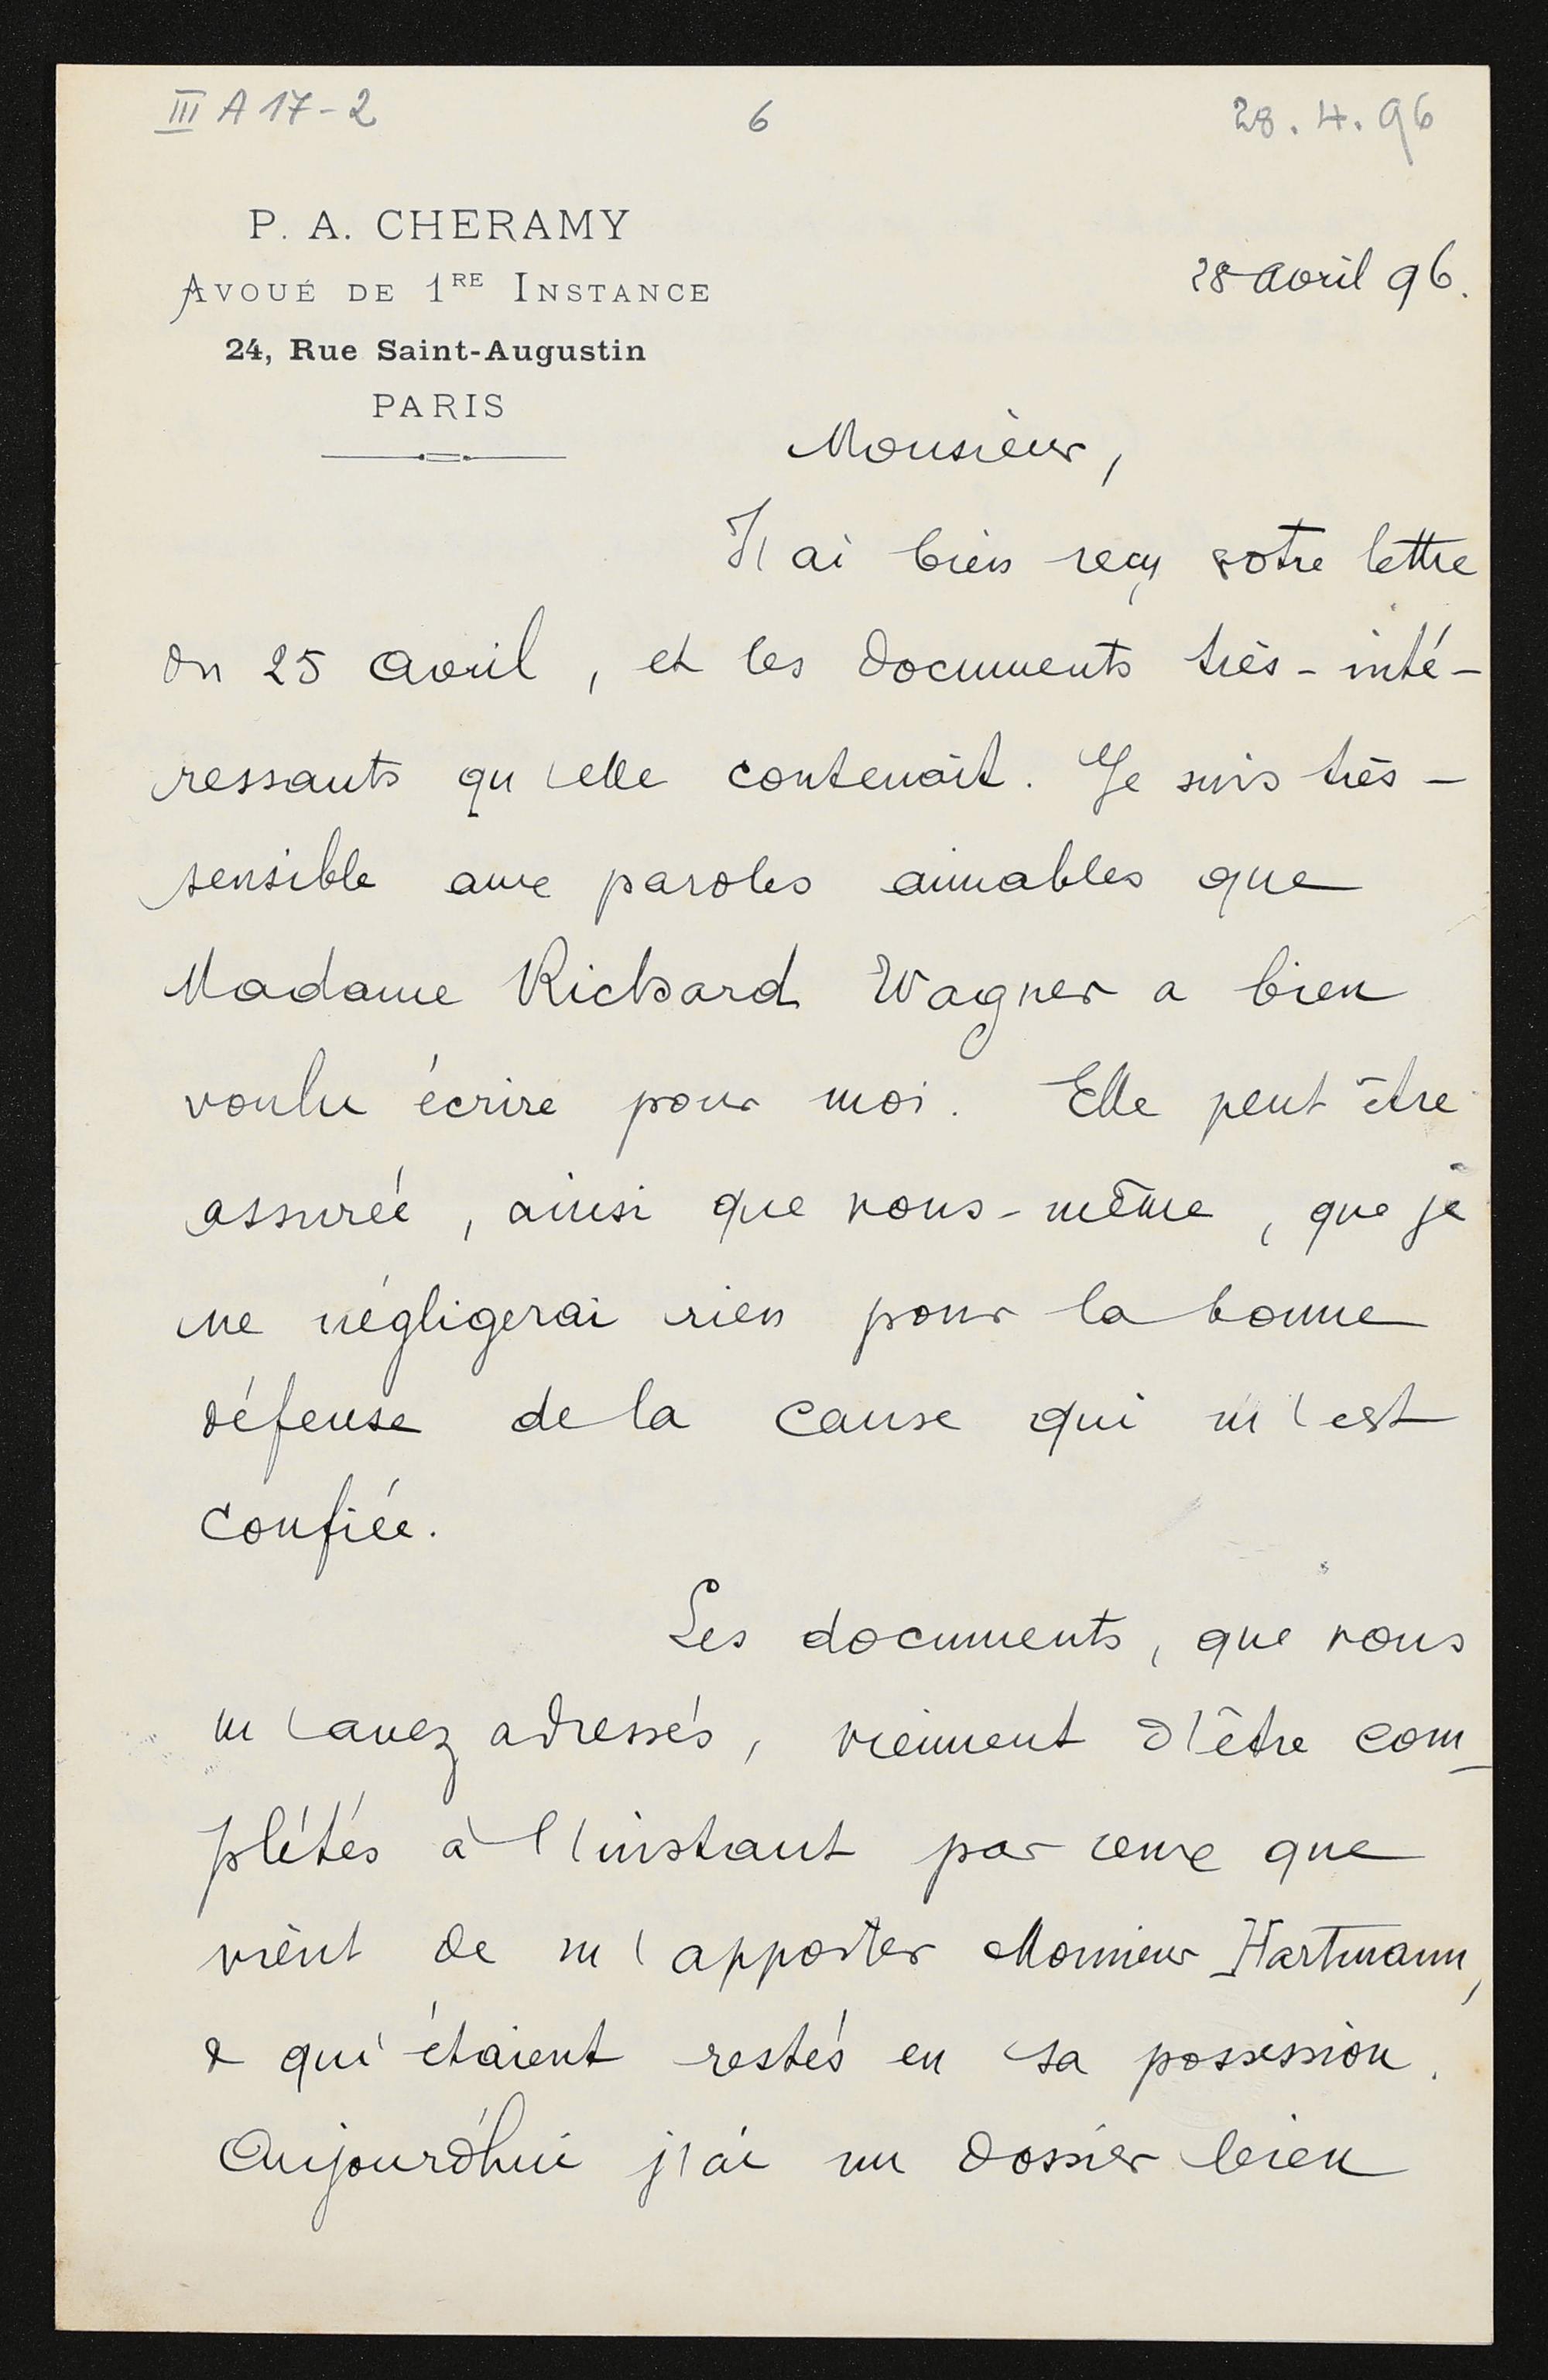 III A 17-2
6
28.4.96
P. A. CHERAMY
AVOUÉ DE 1RE INSTANCE
24, Rue Saint-Augustin
PARIS
28 avril 96.
Monsieur,
J'ai bien reçu votre lettre
du 25 avril, et les documents très-inté-
ressants qu'elle contenait. Je suis très-
sensible aux paroles aimables que
Madame Richard Wagner a bien
voulu écrire pour moi. Elle peut être
assurée, ainsi que vous-même, que je
ne négligerai rien pour la bonne
défense de la cause qui m'est
confiée.
Les documents, que vous
m'avez adressés, viennent d'être com-
plétés à l'instant par ceux que
vient de m'apporter Monsieur Hartmann,
& qui étaient restés en sa possession.
Aujourd'hui j'ai un dossier bien